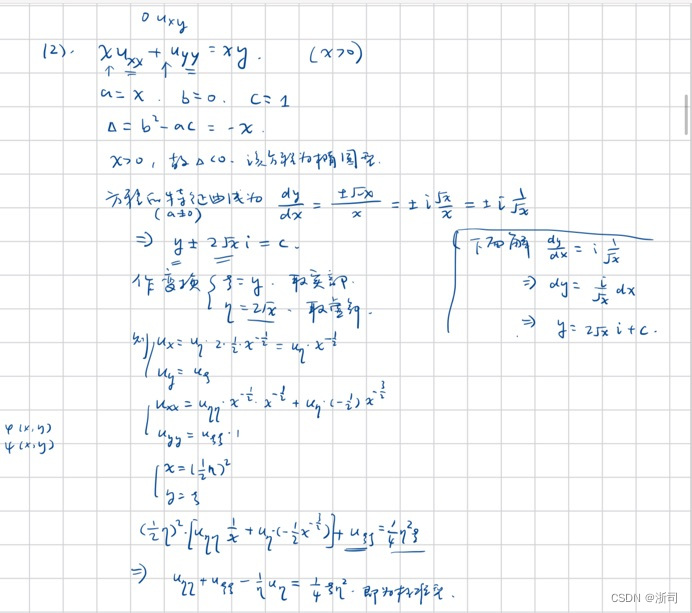 0 uxy
(2). x uxx + uyy = xy. (x>0)
↑ ↑
a = x. b = 0. c = 1
Δ = b² - ac = -x.
x>0, 故 Δ<0. 该方程为椭圆型.
方程的特征曲线为 dy/dx = ±√-x / x = ± i √x/x = ± i 1/√x
(a≠0)
⇒ y ± 2√x i = c.
下面解 dy/dx = i 1/√x
⇒ dy = i/√x dx
⇒ y = 2√x i + c.
作变换 { ξ = y. 取实部.
η = 2√x. 取虚部.
则 ux = uη · 2 · 1/2 · x^(-1/2) = uη · x^(-1/2)
uy = uξ
uxx = uηη · x^(-1/2) · x^(-1/2) + uη · (-1/2) x^(-3/2)
uyy = uξξ · 1
φ(x,y)
ψ(x,y)
x = (1/2 η)²
y = ξ
(1/2 η)² · [uηη 1/x + uη · (-1/2 x^(-3/2))] + uξξ = 1/4 η² ξ
⇒ uηη + uξξ - 1/η uη = 1/4 ξη². 即为标准型.
CSDN @浙司